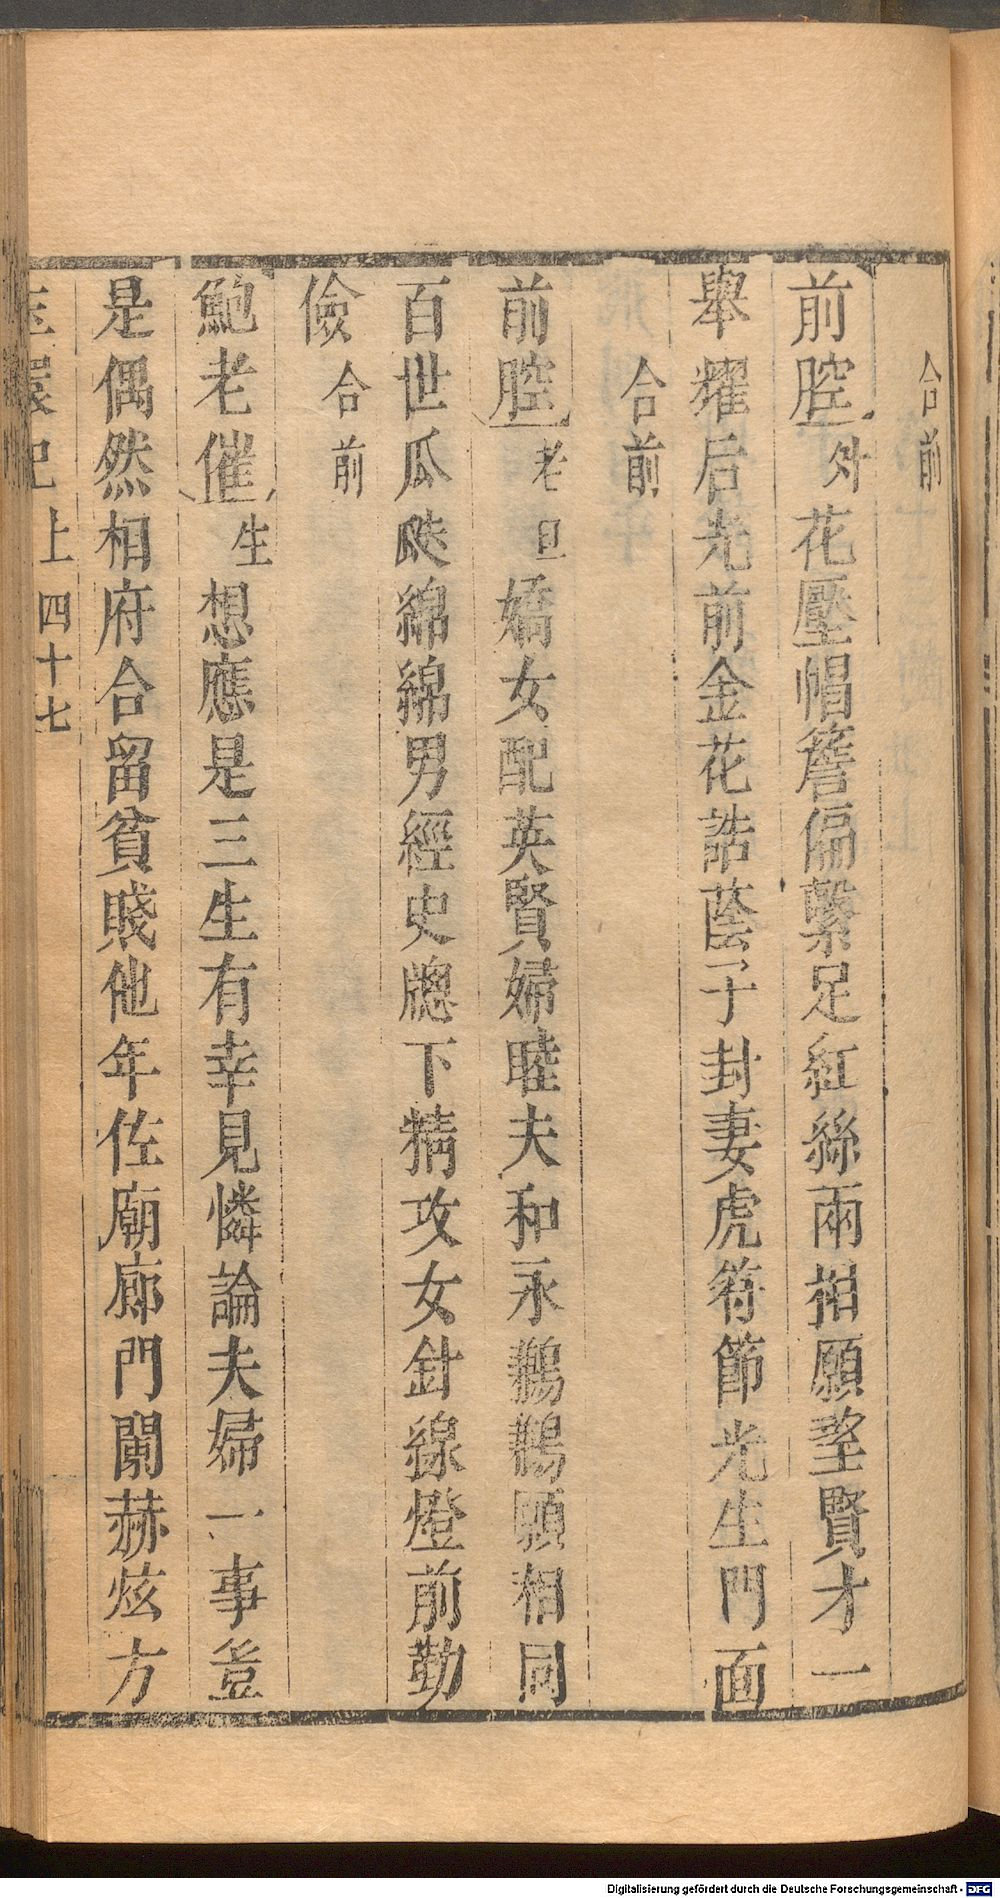 合前
前腔外花壓帽簷偏繫足紅絲兩相願望賢才一
舉耀后光前金花誥蔭子封妻虎符節光生門面
合前
前腔老旦嬌女配英賢婦睦夫和永鶼鶼願相同
百世瓜瓞綿綿男經史牕下精攻女針線燈前勤
儉合前
鮑老催生想應是三生有幸見憐論夫婦一事豈
是偶然相府合留貧賤他年佐廟廊門闌赫炫方
玉環記上四十七
Digitalisierung gefördert durch die Deutsche Forschungsgemeinschaft - DFG